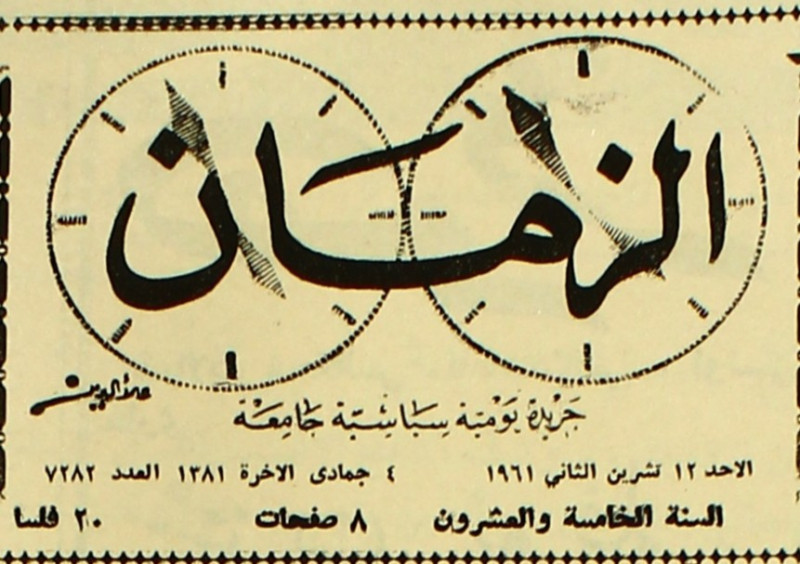 الزمان
علاء الدين
جريدة يومية سياسية جامعة
الاحد ١٢ تشرين الثاني ١٩٦١ ٤ جمادى الاخرة ١٣٨١ العدد ٧٢٨٢
السنة الخامسة والعشرون ٨ صفحات ٢٠ فلسا